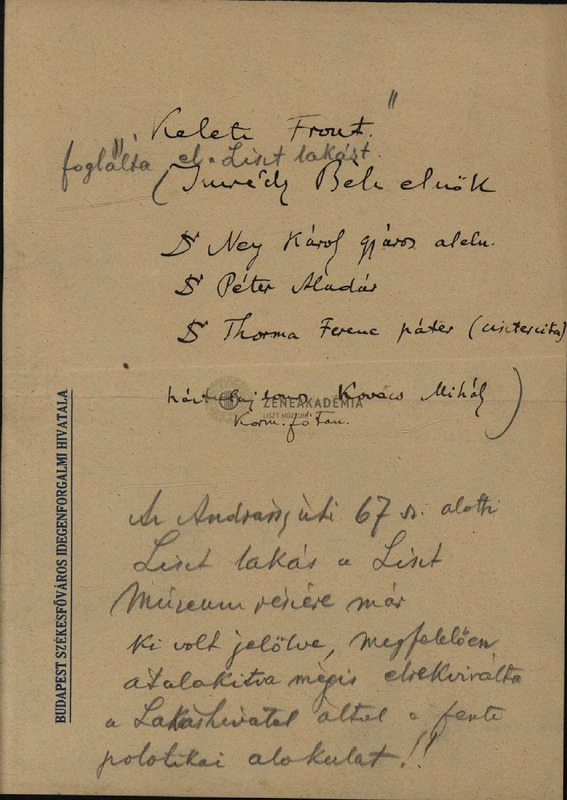 "Keleti Front."
foglalta el. Liszt lakást.
(Imrédy Béla elnök
Dr Ney Károly gyáros aleln.
Dr Péter Aladár
Dr Thorma Ferenc páter (cisztercita)
Kovács Mihály)
Korm. főtan.
ZENEAKADÉMIA
LISZT MÚZEUM
Az Andrássy úti 67 sz. alatti
Liszt lakás a Liszt
Múzeum részére már
ki volt jelölve, megfelelően
átalakitva mégis elrekvirálta
a Lakáshivatal által a fenti
polotikai alakulat!!
BUDAPEST SZÉKESFŐVÁROS IDEGENFORGALMI HIVATALA